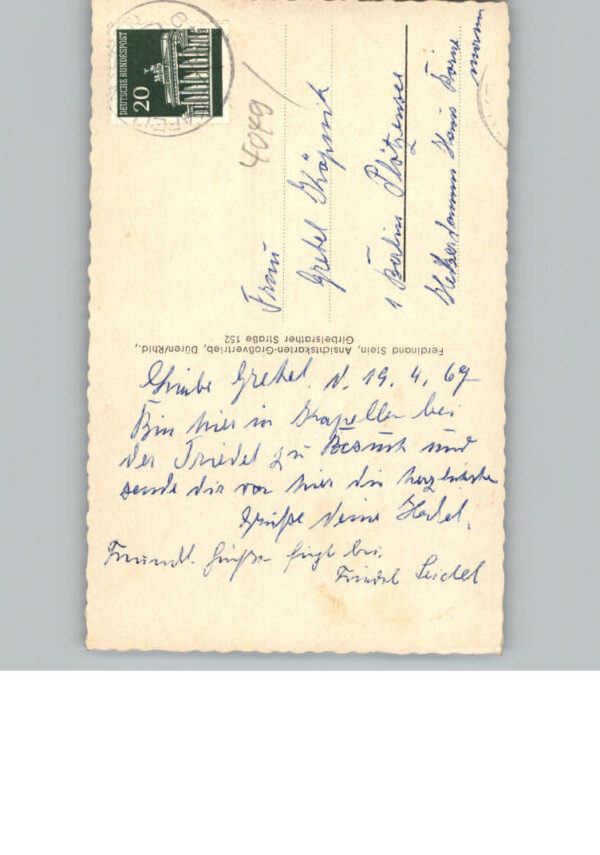 Liebe Gretel. d. 19. 4. 69
Bin hier in Kapellen bei
der Friedel zu Besuch und
sende dir von hier die herzlichsten
Grüße deine Hedel.
Freundl. Grüße fügt bei
Friedel Seidel
Ferdinand Stein, Ansichtskarten-Großvertrieb, Düren/Rhld.,
Girbelsrather Straße 152
Frau
Gretel Köpnik
1 Berlin Plötzensee
Heckerdamm
4049
DEUTSCHE BUNDESPOST
20